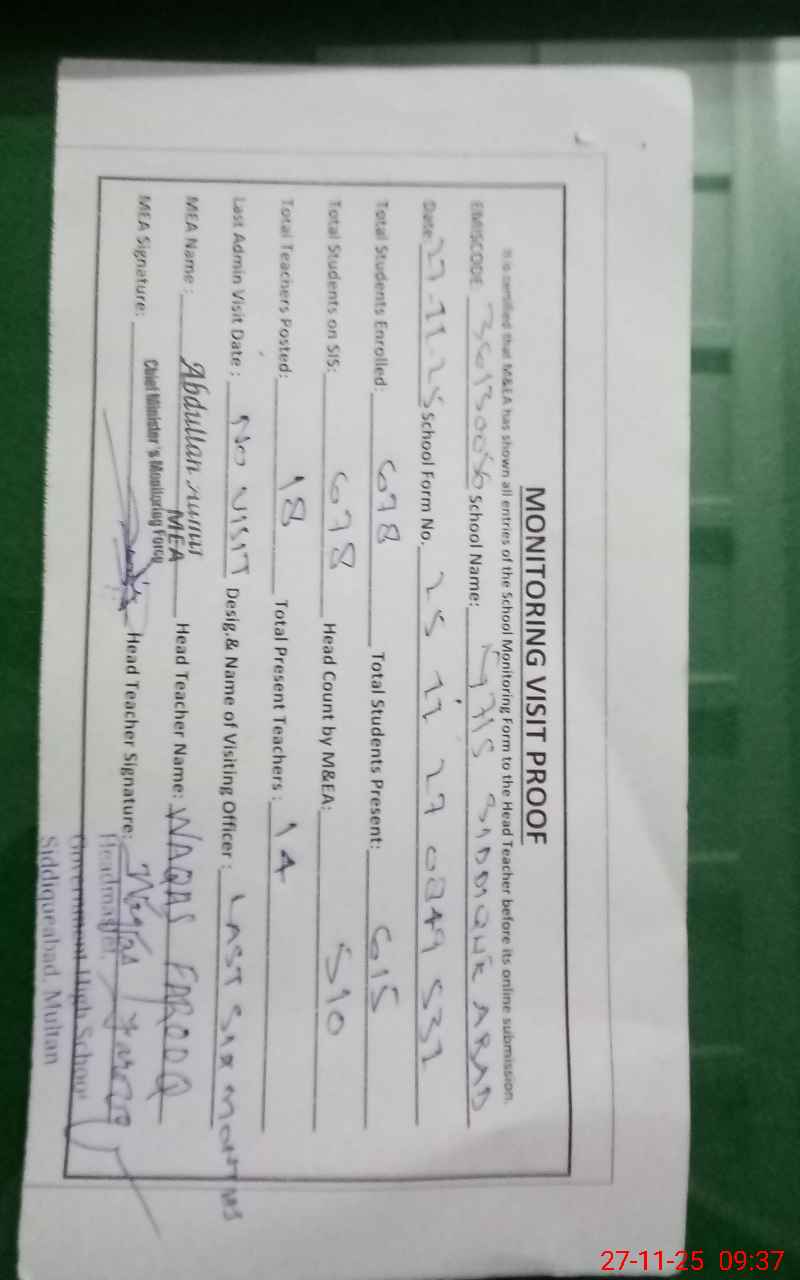 MONITORING VISIT PROOF
It is certified that M&EA has shown all entries of the School Monitoring Form to the Head Teacher before its online submission.
EMISCODE School Name: SIDDIQUE ABAD
Date: 27-11-25 School Form No. 25 11 27 0849 532
Total Students Enrolled: 678 Total Students Present: 615
Total Students on SIS: 678 Head Count by M&EA: 510
Total Teachers Posted: 18 Total Present Teachers : 14
Last Admin Visit Date : NO VISIT Desig.& Name of Visiting Officer : LAST SIX MONTHS
MEA Name : Abdullah MEA Head Teacher Name: WAQAS FAROOQ
Chief Minister's Monitoring Force
MEA Signature: Head Teacher Signature: Waqas Farooq
Headmaster
Government High School
Siddiqueabad, Multan
27-11-25 09:37